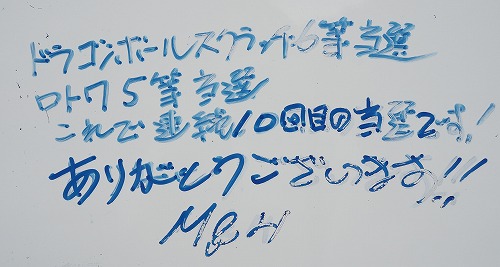 ドラゴンボールスクラッチ6等当選
ロト7 5等当選
これで連続10回目の当選です!
ありがとうございます!!
M&H